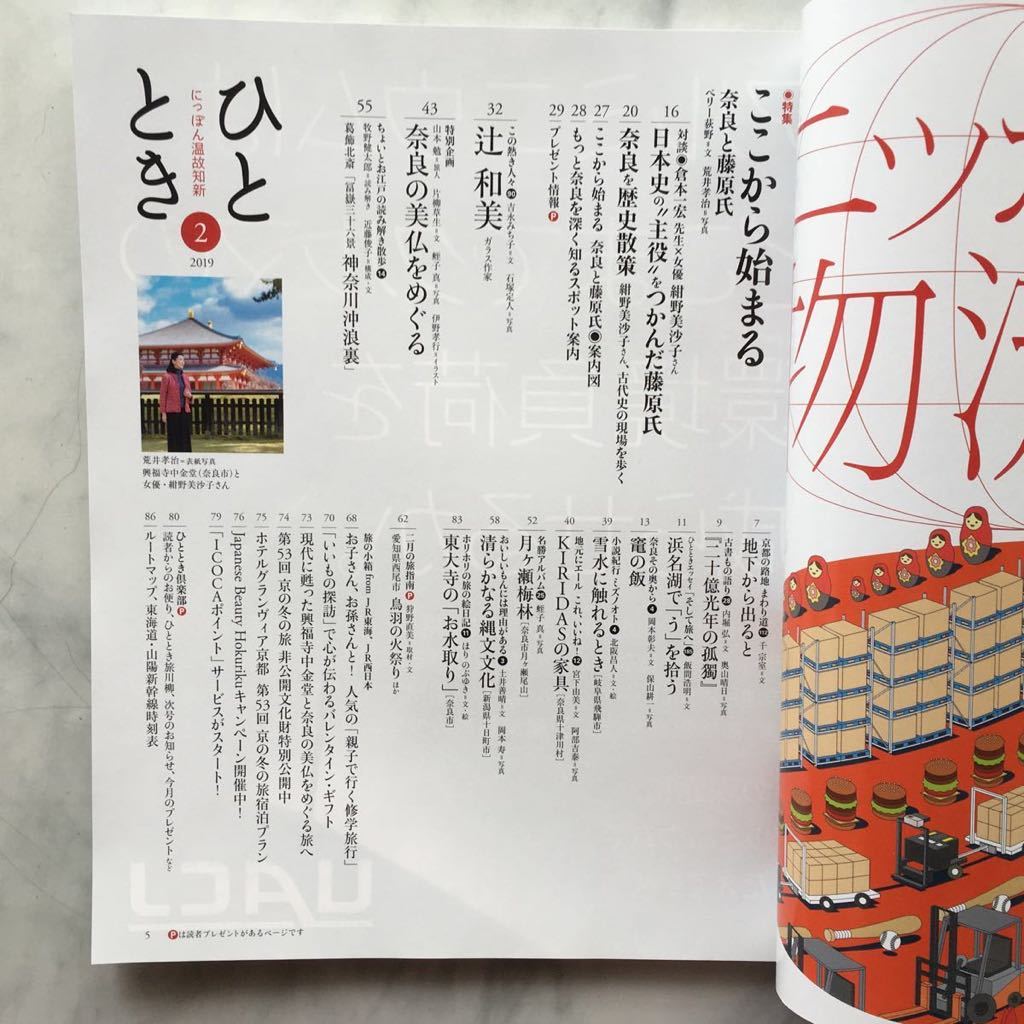 ひととき
にっぽん温故知新
2
2019
荒井孝治=表紙写真
興福寺中金堂(奈良市)と
女優・紺野美沙子さん
●特集
ここから始まる
奈良と藤原氏
ペリー荻野=文 荒井孝治=写真
16
対談●倉本一宏 先生×女優 紺野美沙子さん
日本史の〝主役〟をつかんだ藤原氏
20
奈良を歴史散策 紺野美沙子さん、古代史の現場を歩く
27
ここから始まる 奈良と藤原氏●案内図
28
もっと奈良を深く知るスポット案内
29
プレゼント情報P
32
この熱き人々90 吉永みち子=文 石塚定人=写真
辻 和美 ガラス作家
43
特別企画
奈良の美仏をめぐる
山本 勉=旅人 片柳草生=文 蛭子 真=写真 伊野孝行=イラスト
55
ちょいとお江戸の読み解き散歩14
牧野健太郎=読み解き 近藤俊子=構成・文
葛飾北斎「冨嶽三十六景 神奈川沖浪裏」
7
京都の路地 まわり道112 千 宗室=文
地下から出ると
9
古書もの語り26 内堀 弘=文 奥山晴日=写真
『二十億光年の孤独』
11
ひとときエッセイ「そして旅へ」 飯間浩明=文
浜名湖で「う」を拾う
13
奈良その奥から4 岡本彰夫=文 保山耕一=写真
竃の飯
39
小説紀行・ミヅノオト4 北阪昌人=文・絵
雪水に触れるとき[岐阜県飛騨市]
40
地元にエール これ、いいね!12 宮下由美=文 阿部吉泰=写真
KIRIDASの家具[奈良県十津川村]
52
名勝アルバム26 蛭子 真=写真
月ヶ瀬梅林[奈良市月ヶ瀬尾山]
58
おいしいもんには理由がある3 土井善晴=文 岡本 寿=写真
清らかなる縄文文化[新潟県十日町市]
83
ホリホリの旅の絵日記11 ほり のぶゆき=文・絵
東大寺の「お水取り」[奈良市]
62
二月の旅指南P 狩野直美=取材・文
愛知県西尾市 鳥羽の火祭り ほか
旅の小箱 from JR東海、JR西日本
68
お子さん、お孫さんと! 人気の「親子で行く修学旅行」
70
「いいもの探訪」で心が伝わるバレンタイン・ギフト
73
現代に甦った興福寺中金堂と奈良の美仏をめぐる旅へ
74
第53回 京の冬の旅 非公開文化財特別公開中
75
ホテルグランヴィア京都 第53回 京の冬の旅宿泊プラン
76
Japanese Beauty Hokurikuキャンペーン開催中!
79
「ICOCAポイント」サービスがスタート!
80
ひととき倶楽部P
読者からのお便り、ひととき旅川柳、次号のお知らせ、今月のプレゼントなど
86
ルートマップ、東海道・山陽新幹線時刻表
5
Pは読者プレゼントがあるページです
ニッア
物流
UACJ
環境負荷を